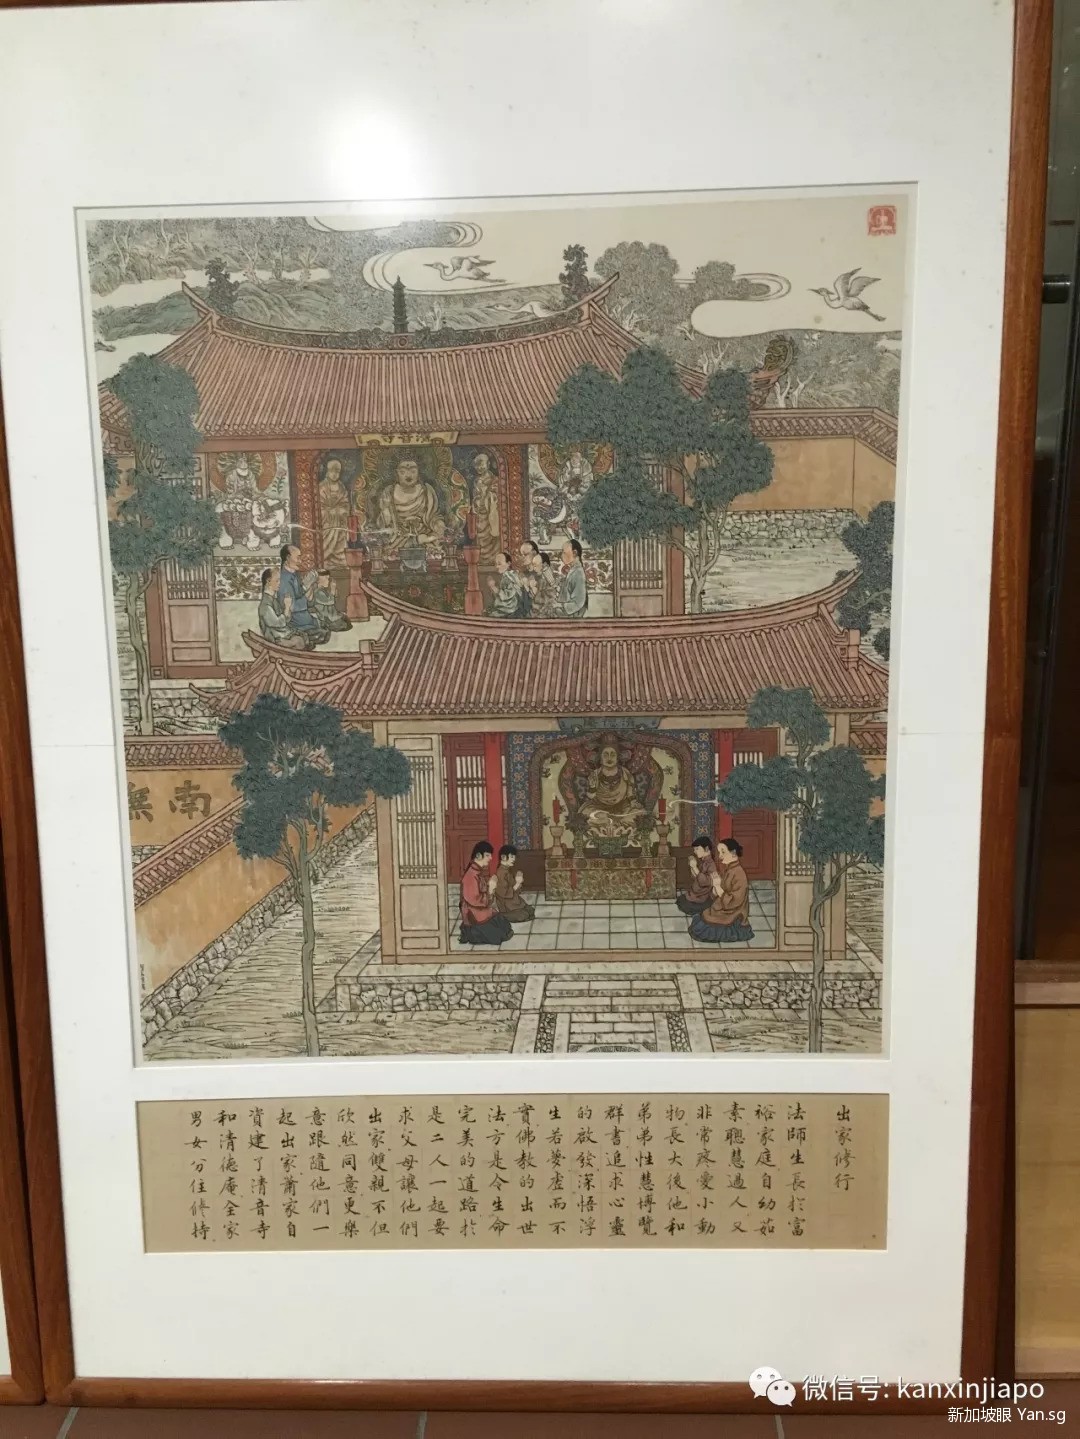 清音寺
清德庵
南無
出家修行
法師生長於富
裕家庭自幼茹
素聰慧過人又
非常疼愛小動
物長大後他和
弟弟性慧博覽
群書追求心靈
的啟發深悟浮
生若夢虛而不
實佛教的出世
法方是令生命
完美的道路於
是二人一起要
求父母讓他們
出家雙親不但
欣然同意更樂
意跟隨他們一
起出家蕭家自
資建了清音寺
和清德庵全家
男女分住修持
微信号: kanxinjiapo
新加坡眼 Yan.sg